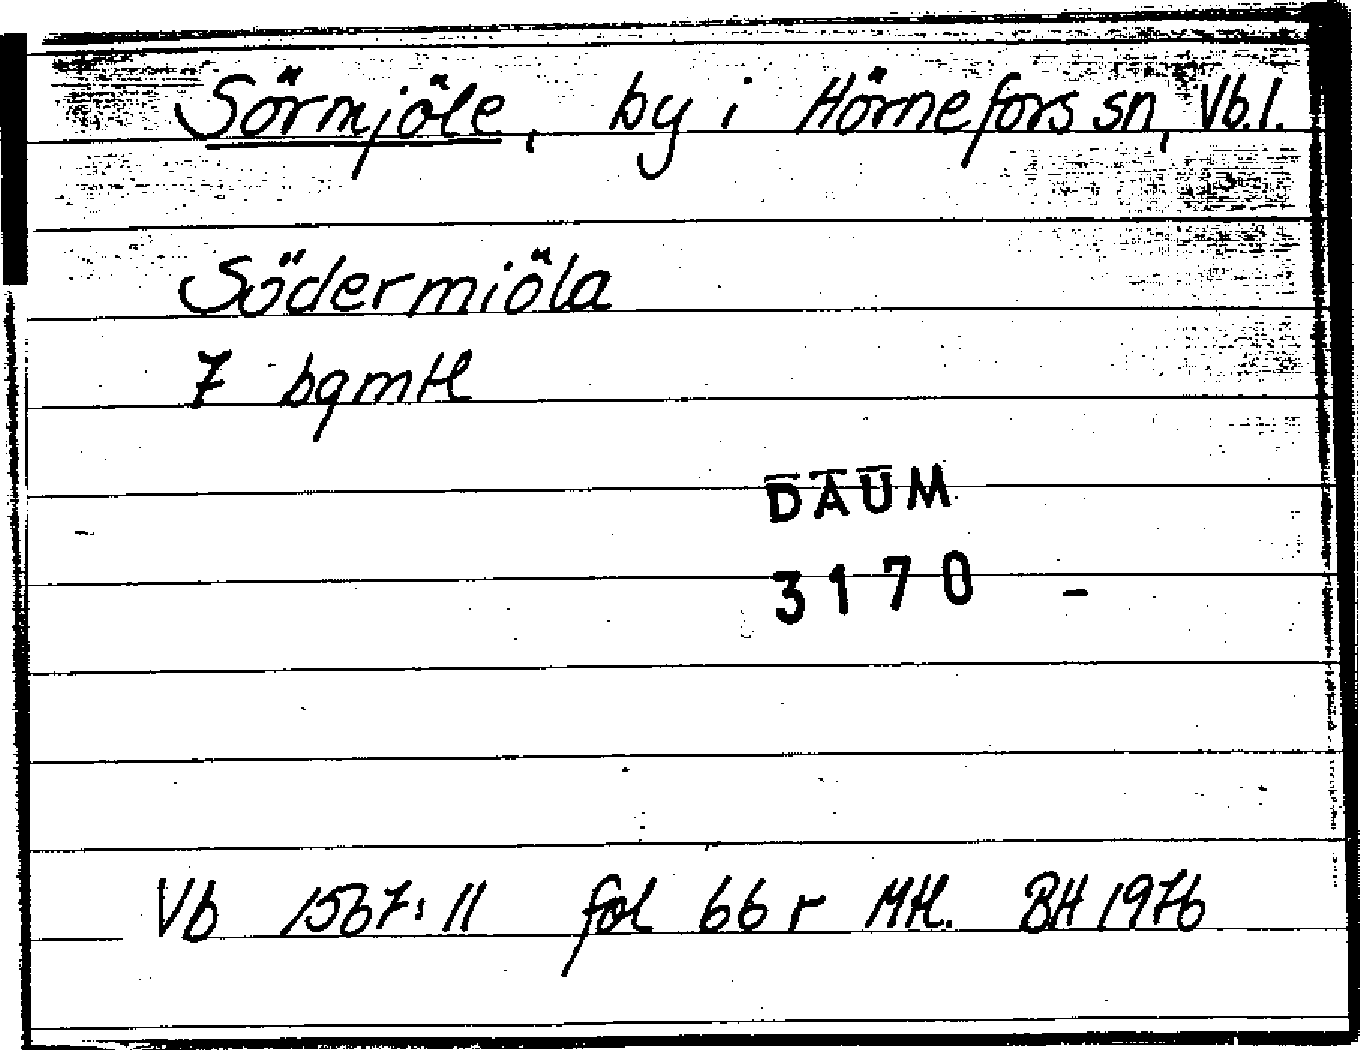 Sörmjöle, by i Hörnefors sn, Vb.l.
Södermiöla
7 bgmtl
DAUM
3170 -
Vb 1567:11 fol 66 r Mtl. BH 1976